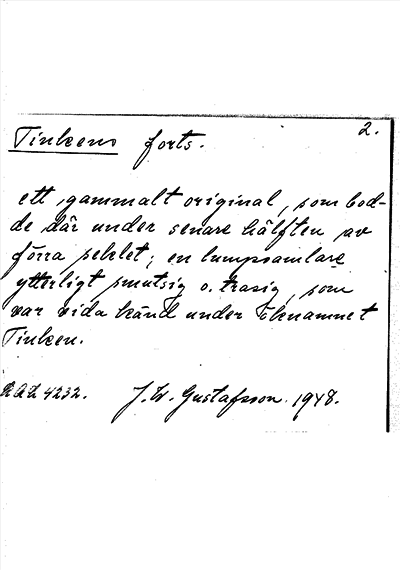 2.
Tinkens forts.
ett gammalt original, som bod-
de där under senare hälften av
förra seklet; en lumpsamlare
ytterligt smutsig o. trasig, som
var vida känd under öknamnet
Tinken.
4232. J. W. Gustafsson 1948.